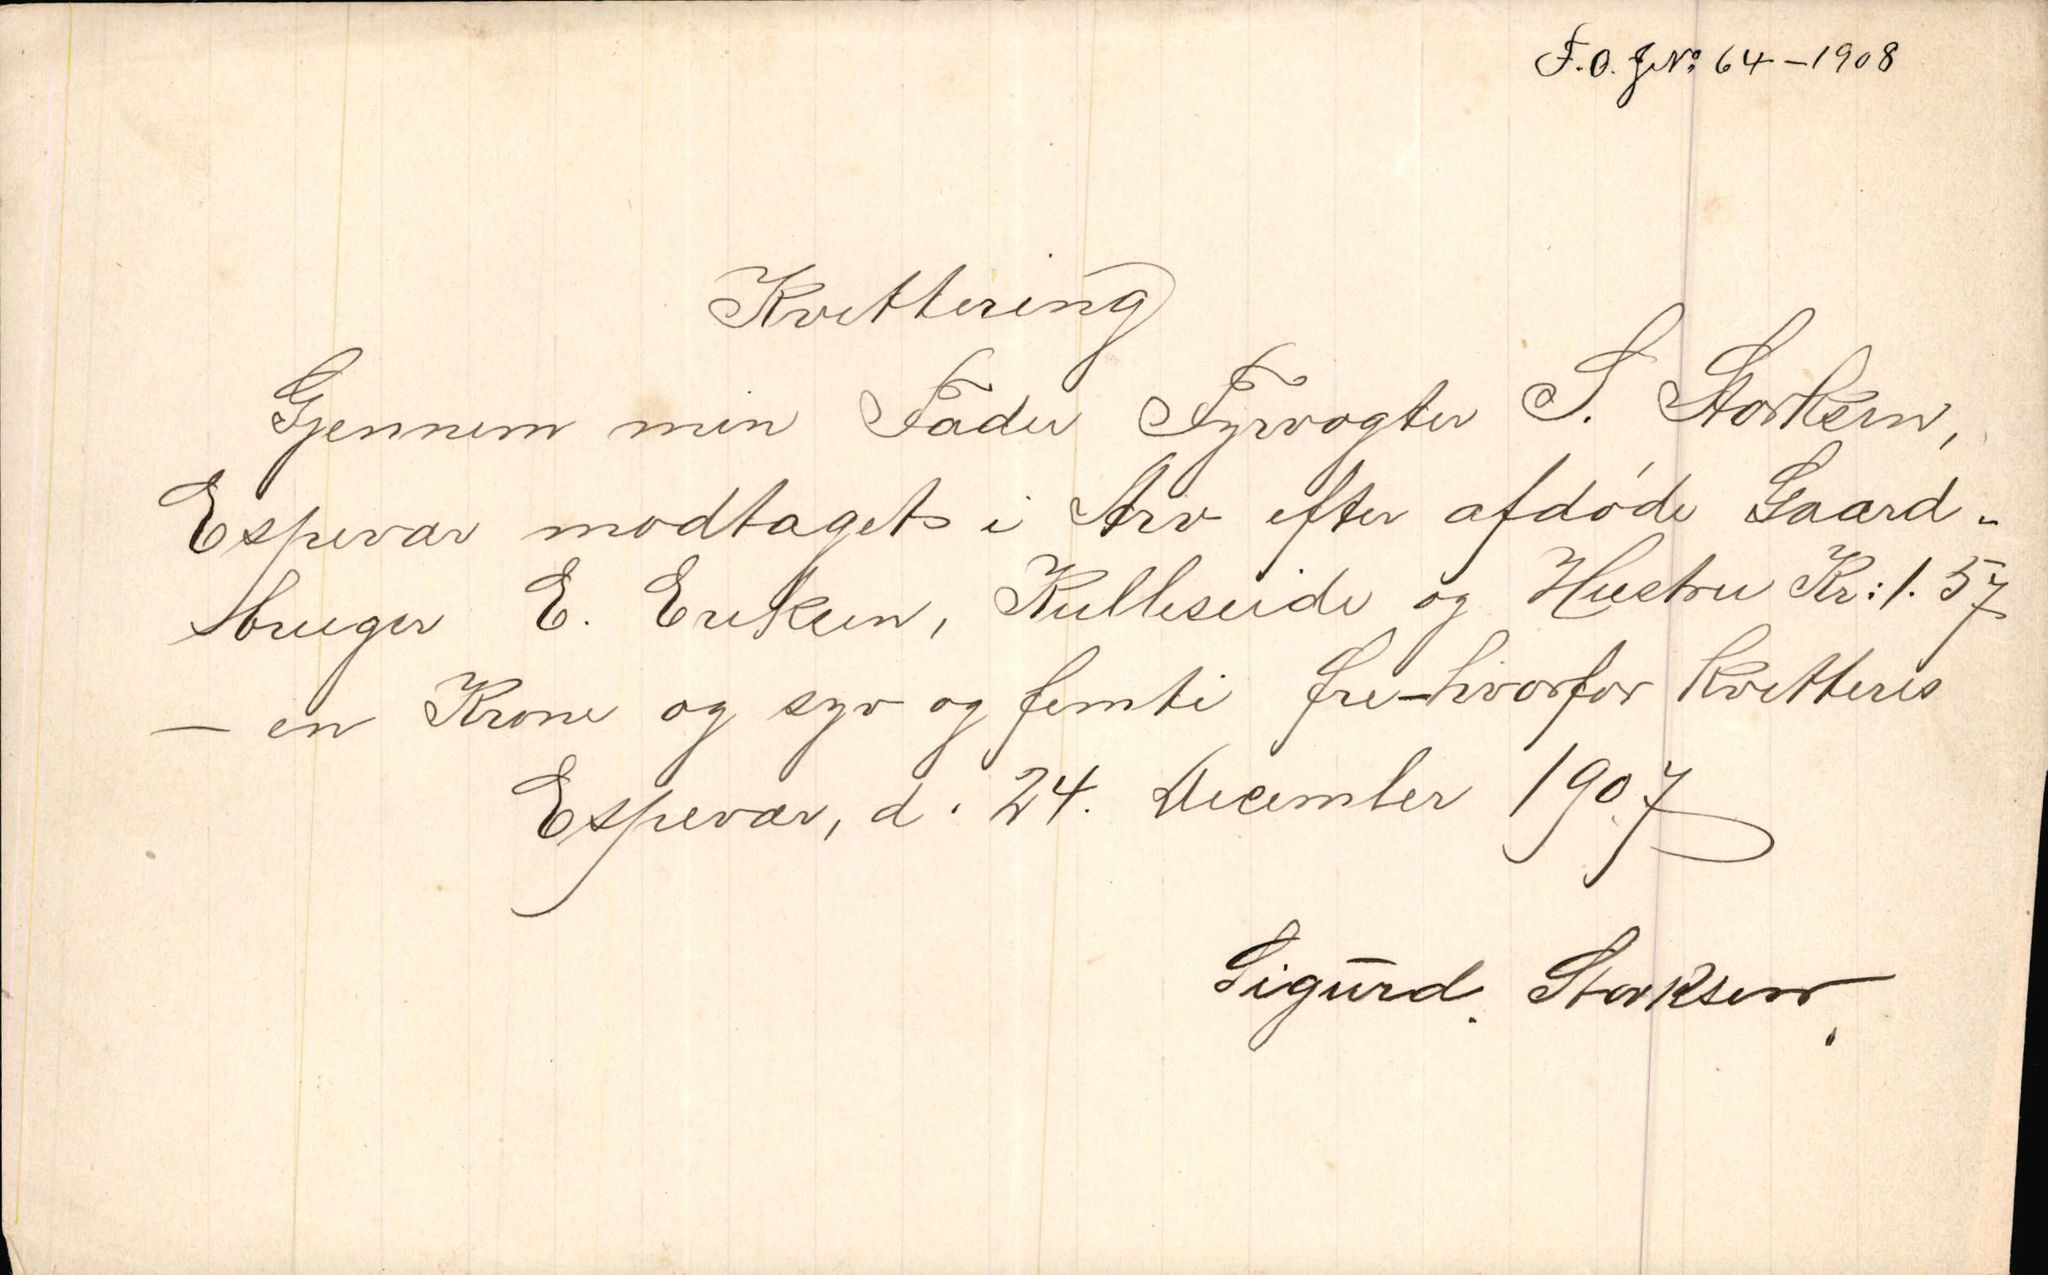 F.O. J№ 64-1908
Kvittering
Gjennem min Fader Fyrvogter S. Storksen,
Espevær modtaget i Arv efter afdøde Gaard-
bruger E. Eriksen, Kulleseide og Hustru Kr: 1.57
— en Krone og syv og femti Øre - hvorfor kvitteres
Espevær, d. 24. December 1907
Sigurd. Storksen.